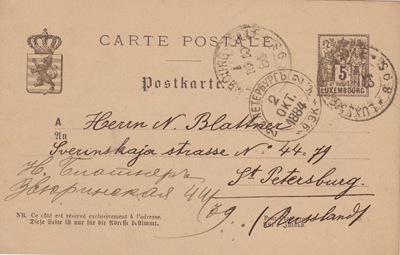 CARTE POSTALE
Postkarte
5
LUXEMBOURG
ПЕТЕРБУРГЪ
2
ОКТ.
1884
A
An
Herrn N. Blattner
Sverinskaja strasse No. 44.79
St Petersburg.
Н. Блотнеръ
Звѣринская 44/
79
(Russland)
NB. Ce côté est réservé exclusivement à l'adresse.
Diese Seite ist nur für die Adresse bestimmt.